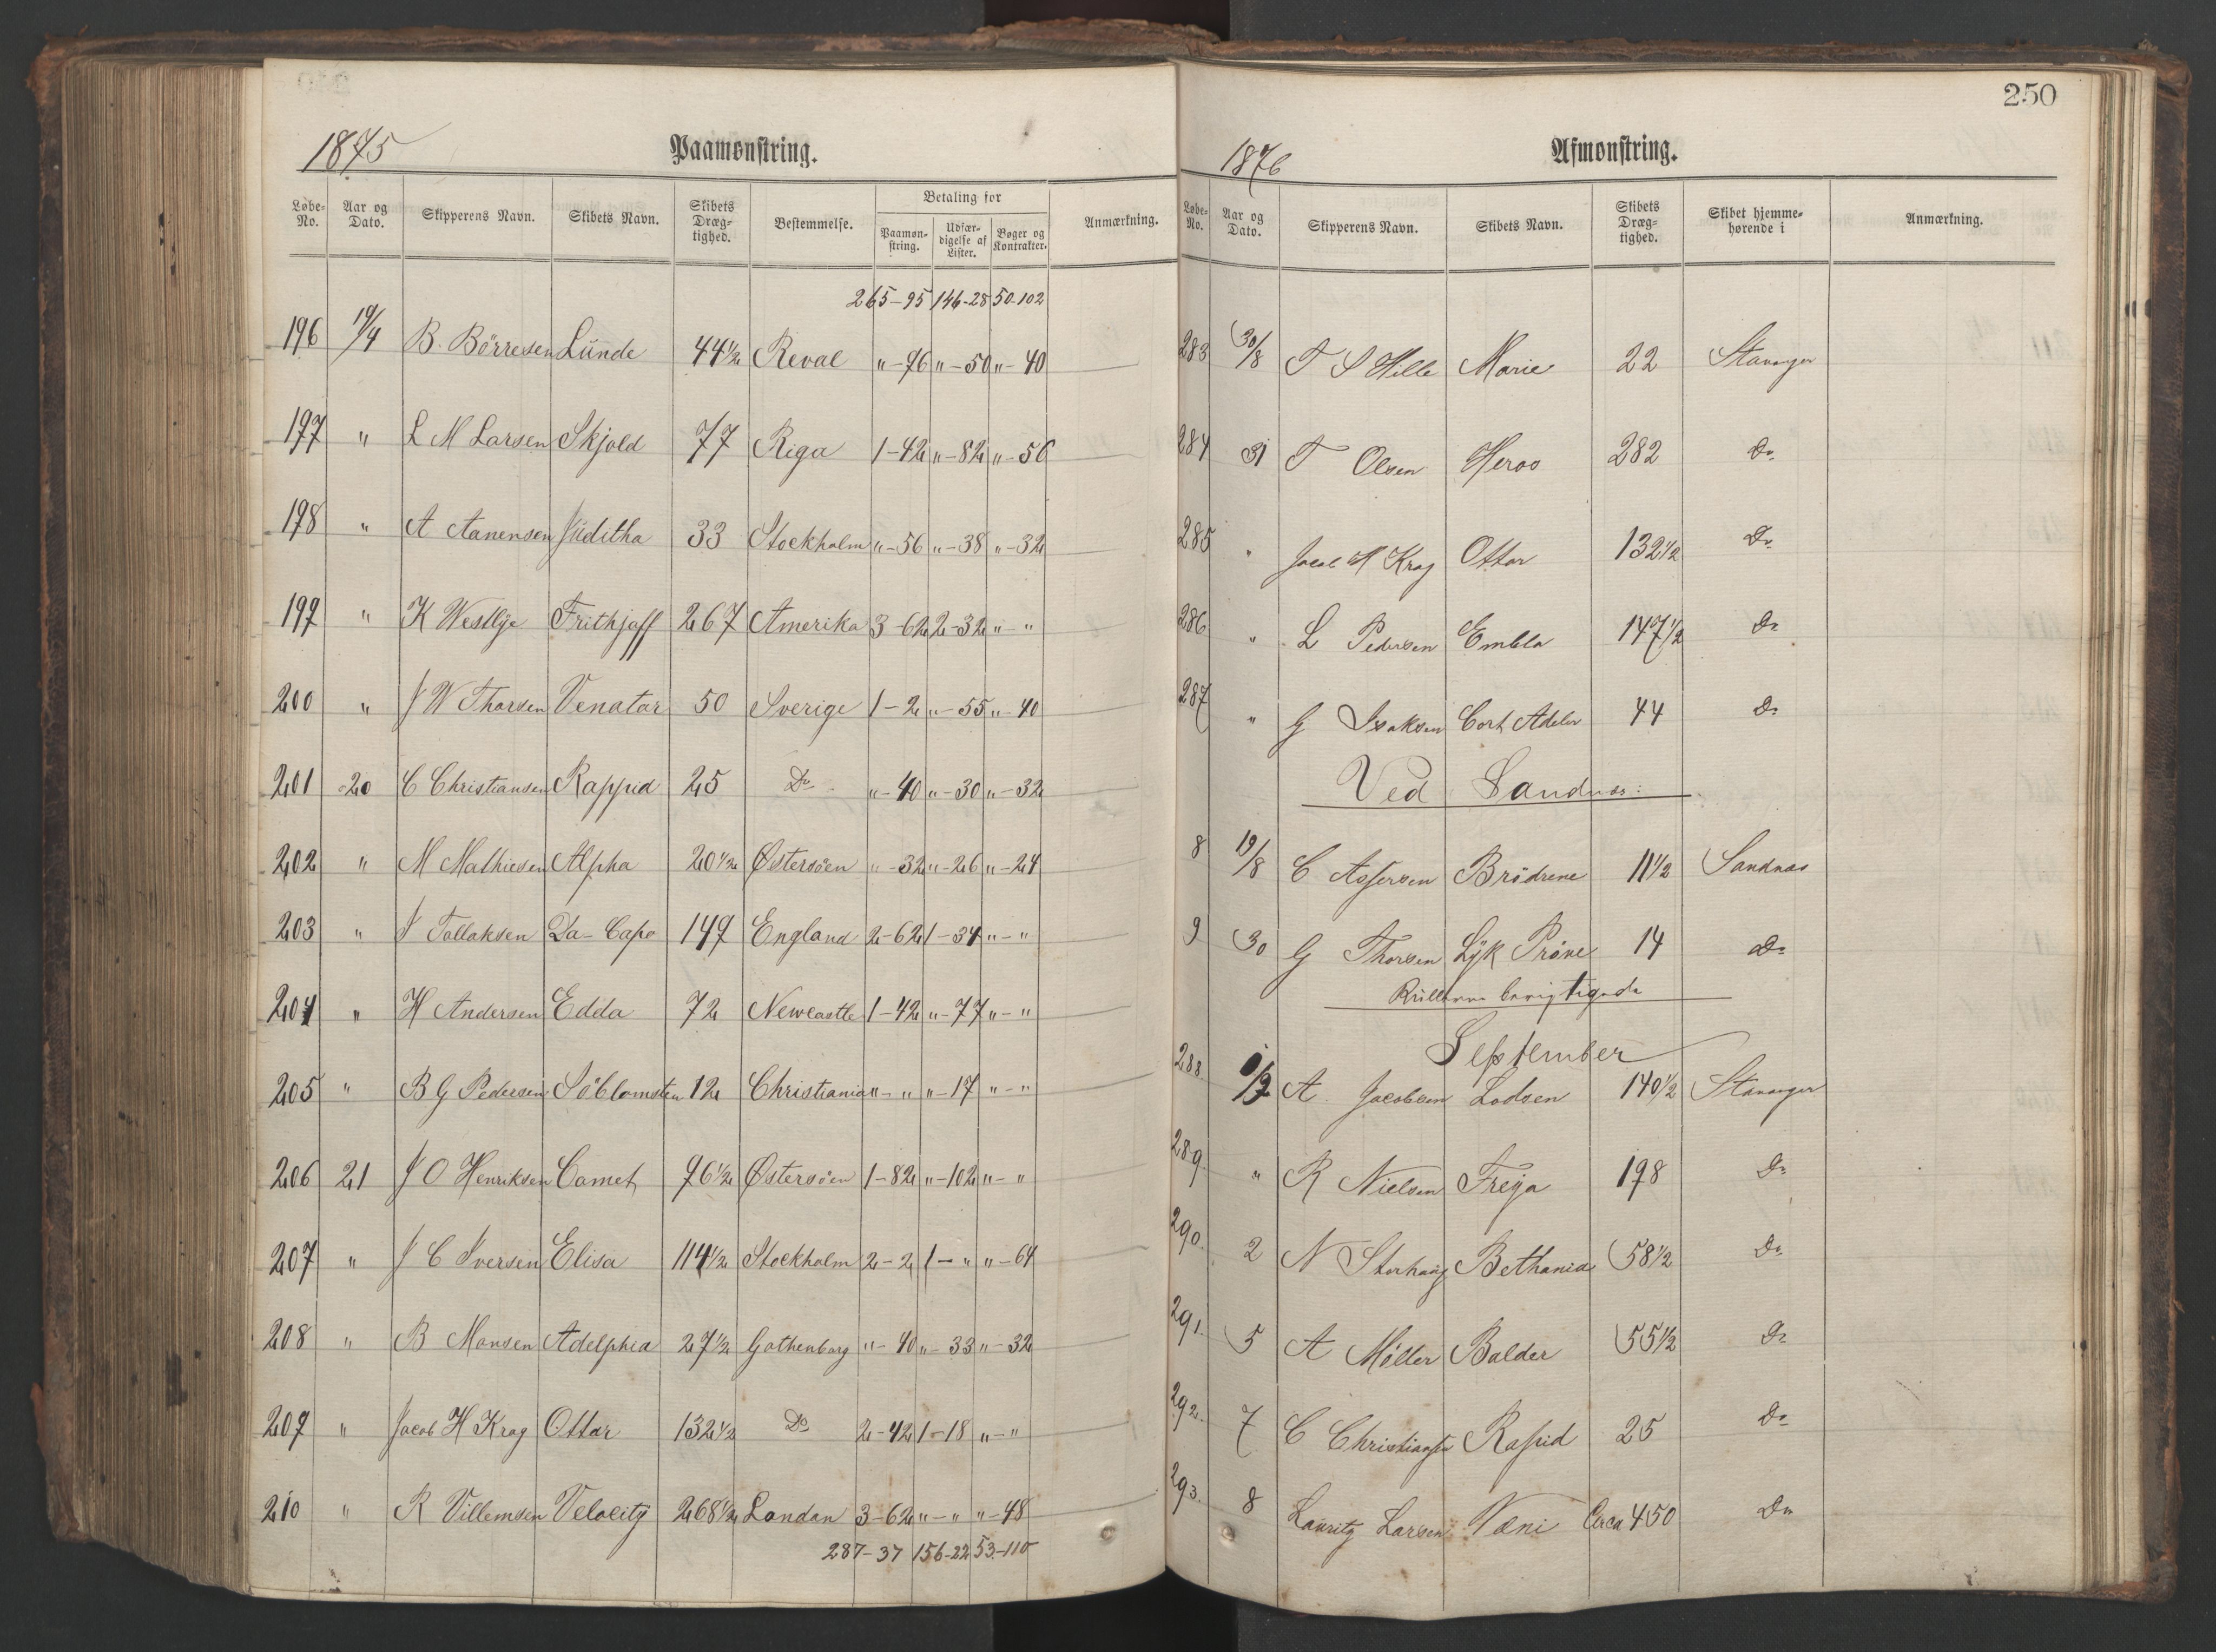 1875 Paamønstring.
Løbe-No. Aar og Dato. Skipperens Navn. Skibets Navn. Skibets Dræg-tighed. Bestemmelse. Betaling for Paamøn-string. Udfær-digelse af Lister. Bøger og Kontrakter. Anmærkning.
265-95 146-28 50-102
196 19/4 B. Börresen Lunde 44 1/2 Reval "-76 "-50 "-40
197 " L M Larsen Skjold 77 Riga 1-42 "-82 "-56
198 " A Aanensen Juditha 33 Stockholm "-56 "-38 "-32
199 " K Westlye Frithjoff 267 Amerika 3-62 2-32 "-"
200 " J W Thorsen Venator 50 Sverige 1-2 "-55 "-40
201 -20 C Christiansen Rappid 25 Do "-40 "-30 "-32
202 " M Mathiesen Alpha 20 1/2 Østersöen "-32 "-26 "-24
203 " J Tollaksen Da-Capo 149 England 2-62 1-34 "-"
204 " H Andersen Edda 72 Newcastle 1-42 "-77 "-"
205 " B G Pedersen Söblomsten 12 Christiania "-" "-17 "-"
206 21 J O Henriksen Comet 96 1/2 Østersöen 1-82 "-102 "-"
207 " J C Iversen Elisa 114 1/2 Stockholm 2-2 1-" "-64
208 " B Monsen Adelphia 27 1/2 Gothenborg "-40 "-33 "-32
209 " Jacob H Krag Ottar 132 1/2 Do 2-42 1-18 "-"
210 " R Villemsen Velocity 268 1/2 London 3-62 "-" "-48
287-37 156-22 53-110
250
1876 Afmønstring.
Løbe-No. Aar og Dato. Skipperens Navn. Skibets Navn. Skibets Dræg-tighed. Skibet hjemme-hørende i Anmærkning.
283 30/8 T S Hille Marie 22 Stavanger
284 31 T Olsen Heros 282 Do
285 " Jacob H Krag Ottar 132 1/2 Do
286 " L Pedersen Embla 147 1/2 Do
287 " G Isaksen Cort Adeler 44 Do
Ved Sandnæs:
8 19/8 C Assersen Brödrene 11 1/2 Sandnæs
9 30 G Thorsen Lyk Pröve 14 Do
Rullerne
September
288 1/9 A Jacobsen Lodsen 140 1/2 Stavanger
289 " R Nielsen Freya 198 Do
290. 2 N Storhaug Bethania 58 1/2 Do
291. 5 A Möller Balder 55 1/2 Do
292. 7 C Christiansen Rapid 25 Do
293. 8 Lauritz Larsen Væni Circa 450 Do